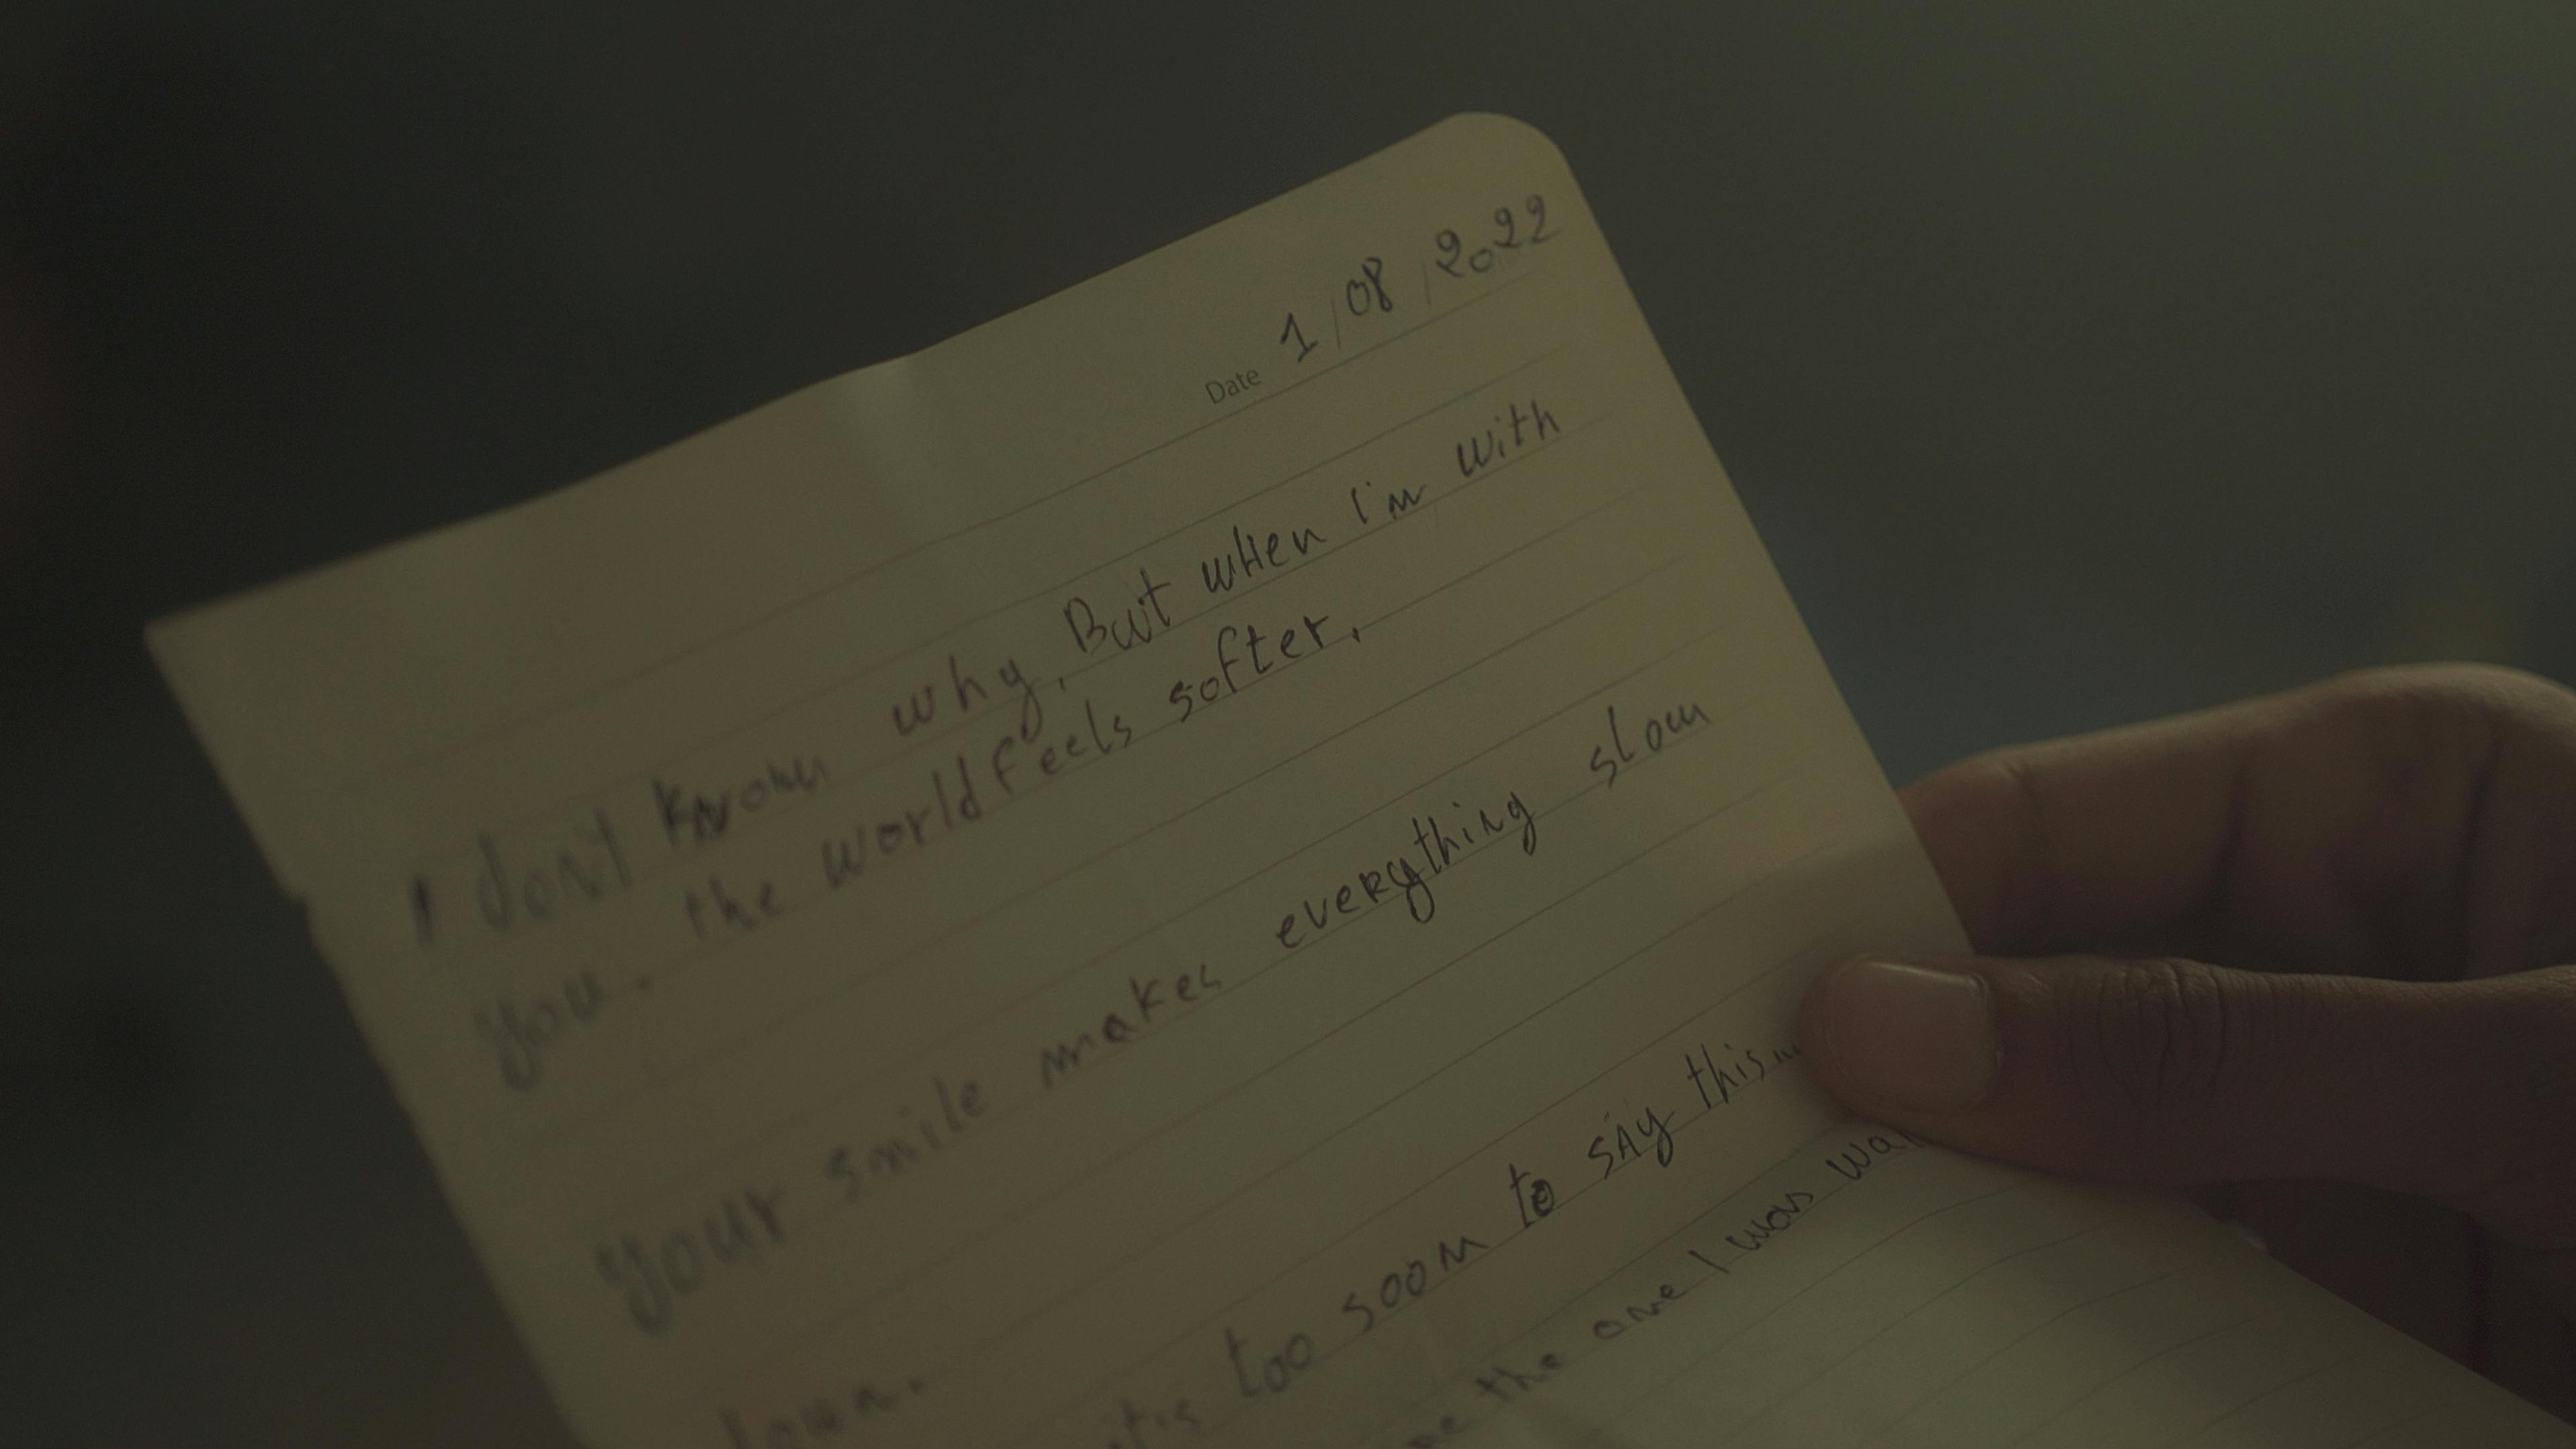 Date 1/08/2022
I don't know why, But wHen I'm with
you. the world feels softer.
your smile makes everything slow
down.
it's too soon to say this...
the one I was